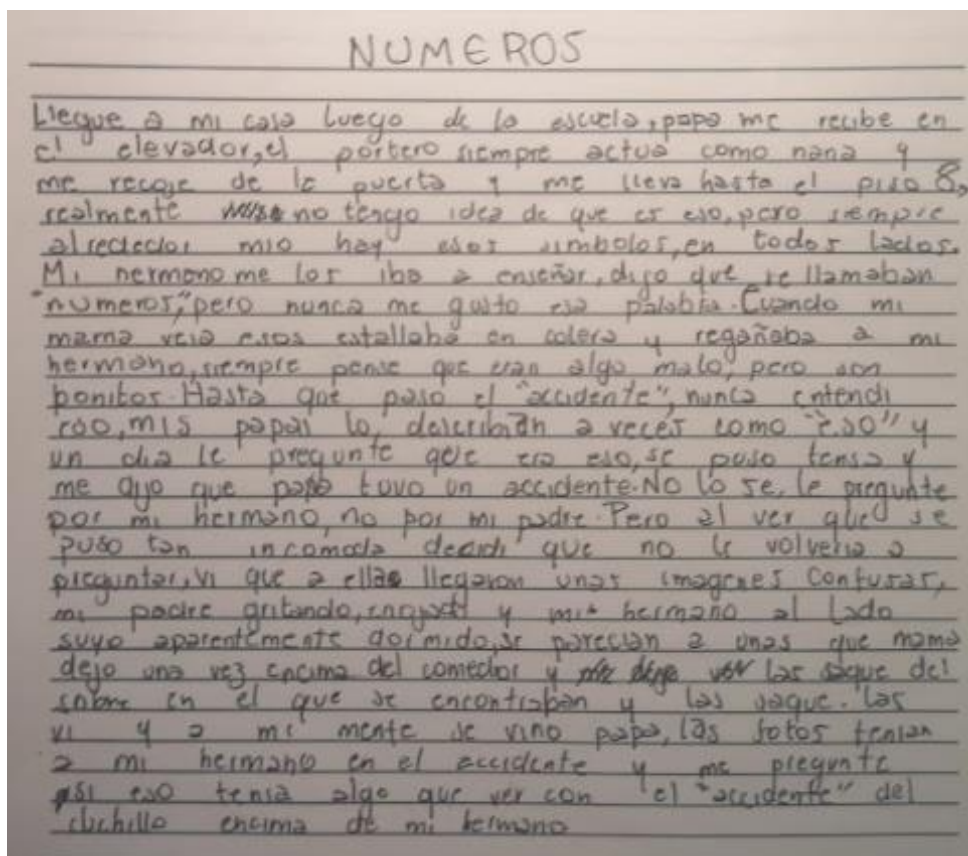 NUMEROS
Llegue a mi casa luego de la escuela, papa me recibe en
el elevador, el portero siempre actua como nana y
me recoje de la puerta y me lleva hasta el piso 8,
realmente no tengo idea de que es eso, pero siempre
alrededor mio hay esos simbolos, en todos lados.
Mi hermano me los iba a enseñar, digo que se llamaban
"numeros", pero nunca me gusto esa palabra. Cuando mi
mama veia esos estallaba en colera y regañaba a mi
hermano, siempre pense que eran algo malo, pero son
bonitos. Hasta que paso el "accidente", nunca entendi
eso, mis papas lo describian a veces como "eso" y
un dia le pregunte que era eso, se puso tensa y
me dijo que papa tuvo un accidente. No lo se, le pregunte
por mi hermano, no por mi padre. Pero al ver que se
puso tan incomoda decidi que no le volveria a
preguntar, vi que a ella llegaron unas imagenes confusas,
mi padre gritando, enojado y mi hermano al lado
suyo aparentemente dormido, se parecian a unas que mama
dejo una vez encima del comedor y las saque del
sobre en el que se encontraban y las saque. Las
vi y a mi mente se vino papa, las fotos tenian
a mi hermano en el accidente y me pregunte
si eso tenia algo que ver con el "accidente" del
cuchillo encima de mi hermano